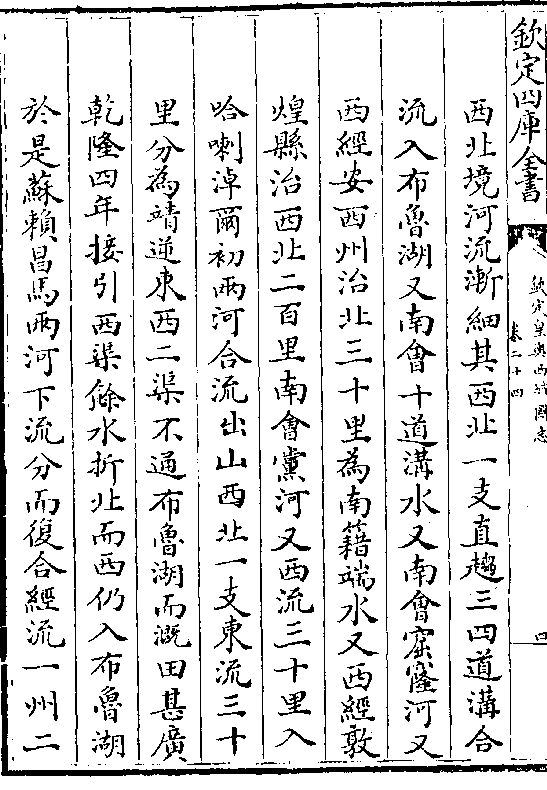 欽定四庫全書
欽定皇輿西域圖志
卷二十四
四
西北境河流漸細其西北一支直趨三四道溝合
流入布魯湖又南會十道溝水又南會窟窿河又
西經安西州治北三十里為南籍端水又西經敦
煌縣治西北二百里南會黨河又西流三十里入
哈喇淖爾初兩河合流出山西北一支東流三十
里分為靖逆東西二渠不通布魯湖而溉田甚廣
乾隆四年接引西渠餘水折北而西仍入布魯湖
於是蘇賴昌馬兩河下流分而復合經流一州二